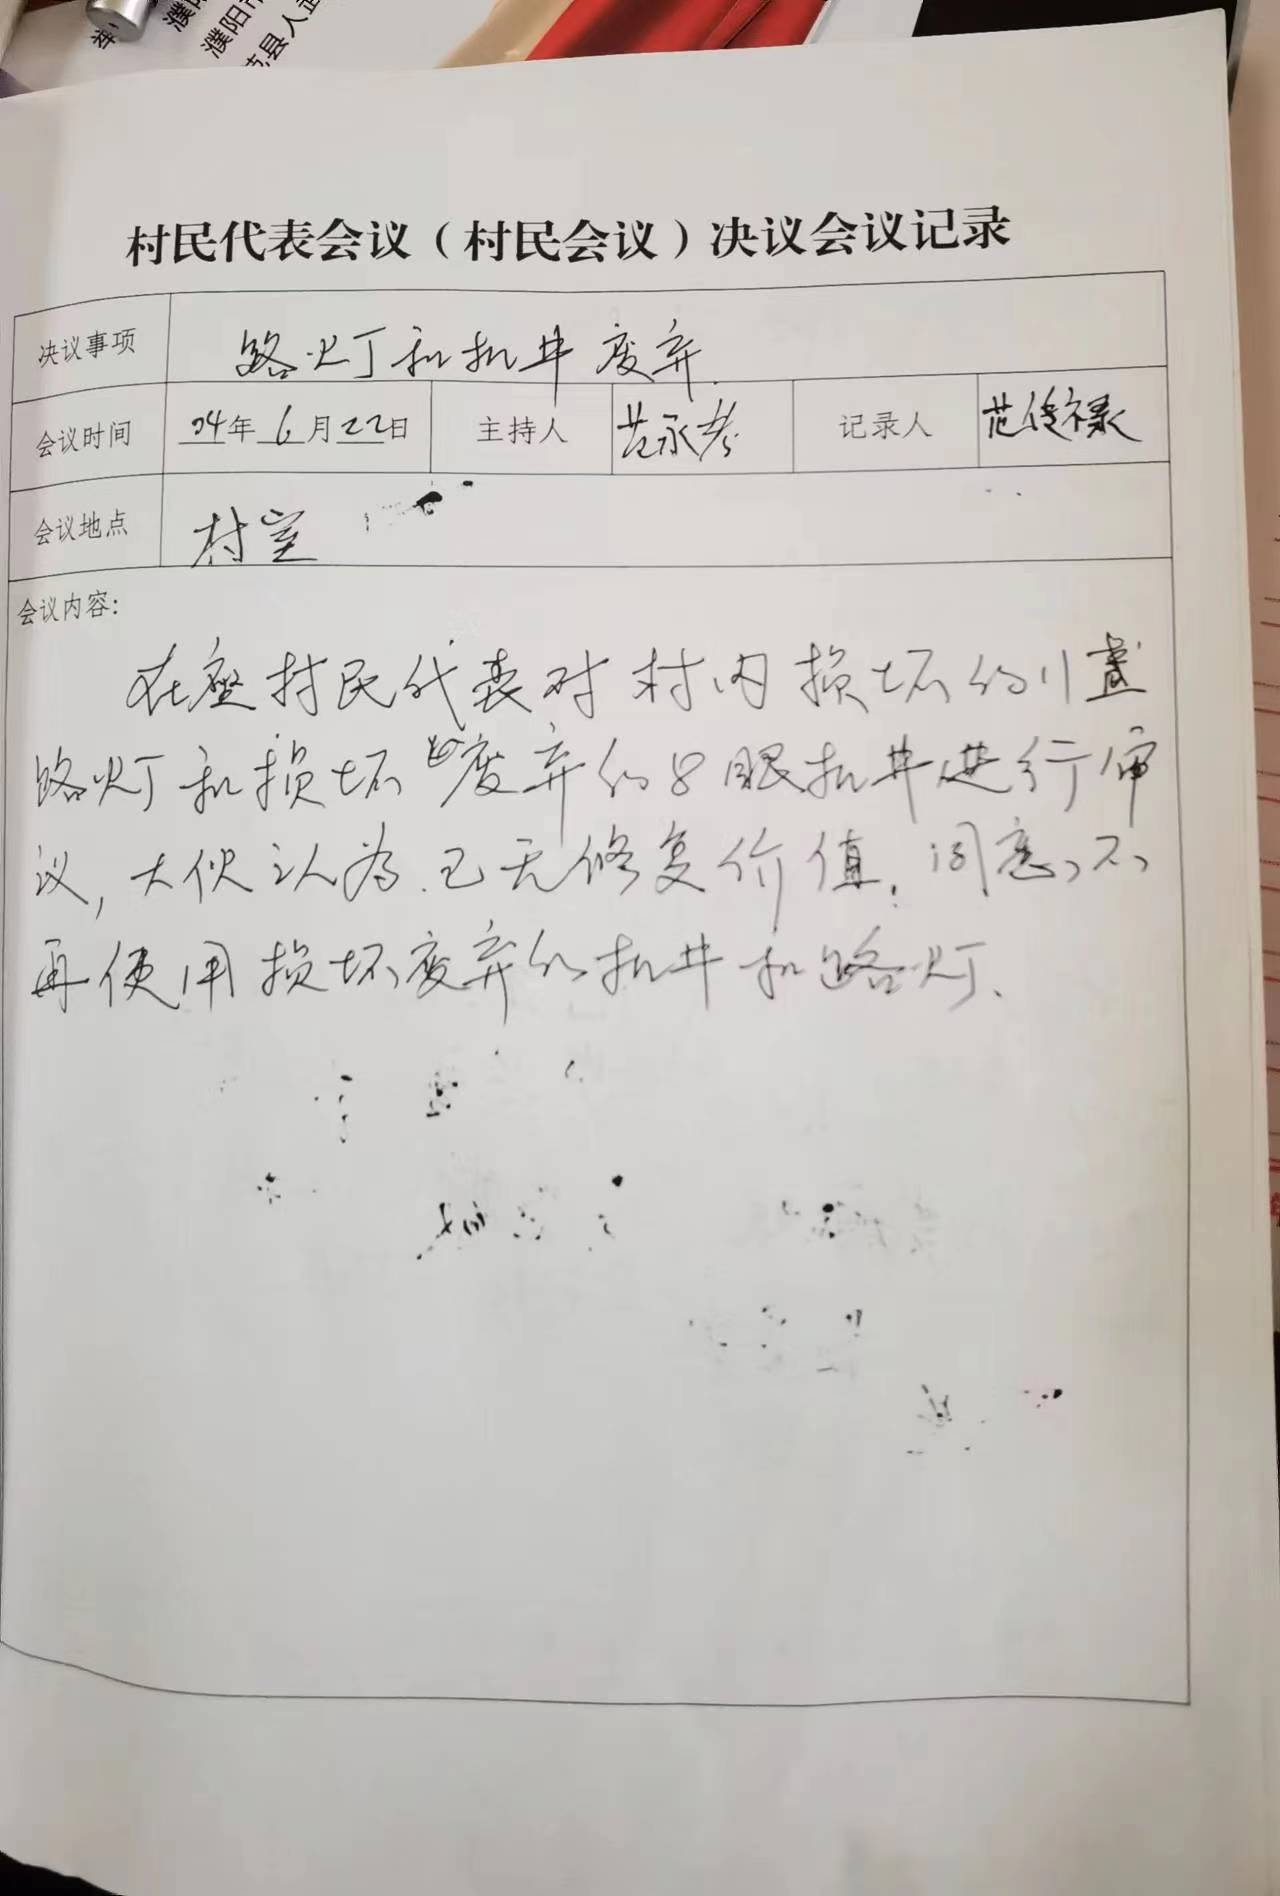 濮阳市
县人武
村民代表会议（村民会议）决议会议记录
决议事项 路灯和机井废弃.
会议时间 24年6月22日 主持人 范永考 记录人 范传禄
会议地点 村室
会议内容：
在座村民代表对村内损坏的11盏
路灯和损坏废弃的8眼机井进行审
议,大伙认为.已无修复价值,同意不
再使用损坏废弃的机井和路灯.